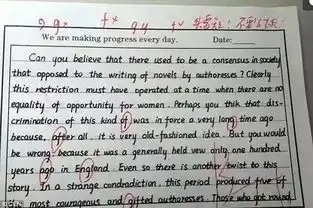 g g x f x g y f x
We are making progress every day. Date:
Can you believe that there used to be a consensus in society
that opposed to the writing of novels by authoresses? Clearly
this restriction must have operated at a time when there are no
equality of opportunity for women. Perhaps you thik that dis-
crimination of this kind of was in force a very long time ago
because, after all, it is very old-fashioned idea. But you would
be wrong, because it was a generally held vew only one hundred
years ago in England. Even so there is another twist to this
story. In a strange condradiction, this period produced five of
most courageous and gifted authoresses. Those who got round